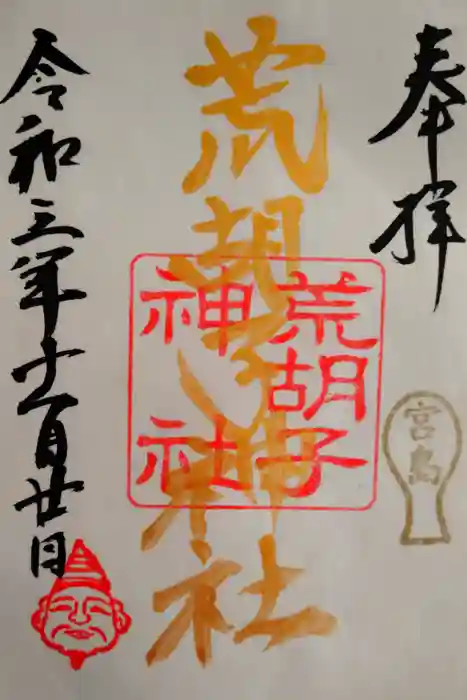 奉拝
宮島
荒胡子神社
荒胡子
神社
令和三年十一月廿日